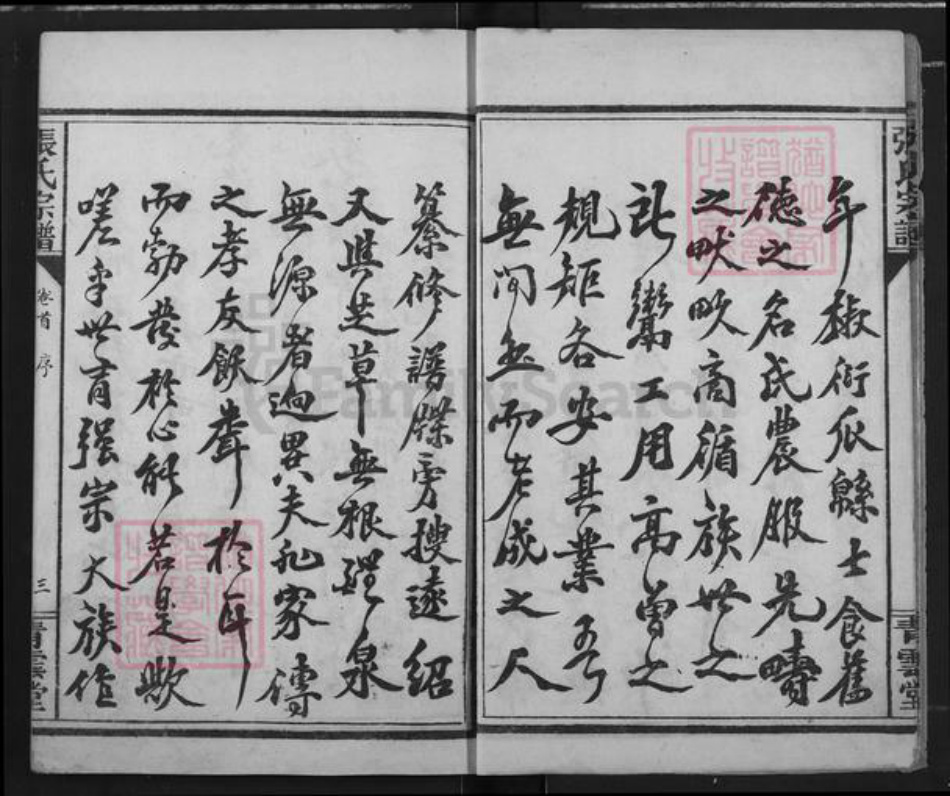 年椒衍瓜緜士食舊
德之名氏農服先疇
之畎畝商循族世之
所鬻工用高曾之
規矩各安其業爭
無間無而老成之人
纂修譜牒旁搜遠紹
又與芝草無根醴泉
無源者迥異夫非家傳
之孝友飫聲於耳
而勃發於心能若是歟
嗟乎世有強宗大族
張氏宗譜
卷首 序
三
青雲堂
張氏宗譜
青雲堂
FamilySearch